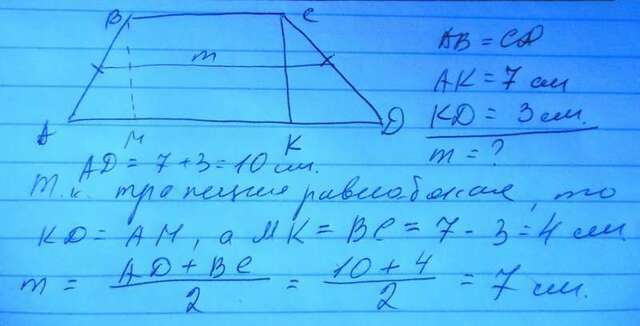 B C
m
A M K D
AB = CD
AK = 7 см
KD = 3 см.
m = ?
AD = 7 + 3 = 10 см.
Т.к. трапеция равнобокая, то
KD = AM, а MK = BC = 7 - 3 = 4 см.
m = (AD + BC)/2 = (10 + 4)/2 = 7 см.